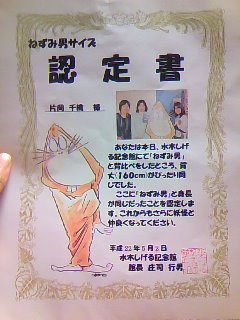 ねずみ男サイズ
認定書
片岡 千織 様
あなたは本日、水木しげ
る記念館にて「ねずみ男」
と背比べをしたところ、背
丈(160cm)がぴったり同
じでした。
ここに「ねずみ男」と身長
が同じだったことを認定しま
す。これからもさらに妖怪と
仲良くなってください。
平成22年5月3日
水木しげる記念館
館長 庄司 行男